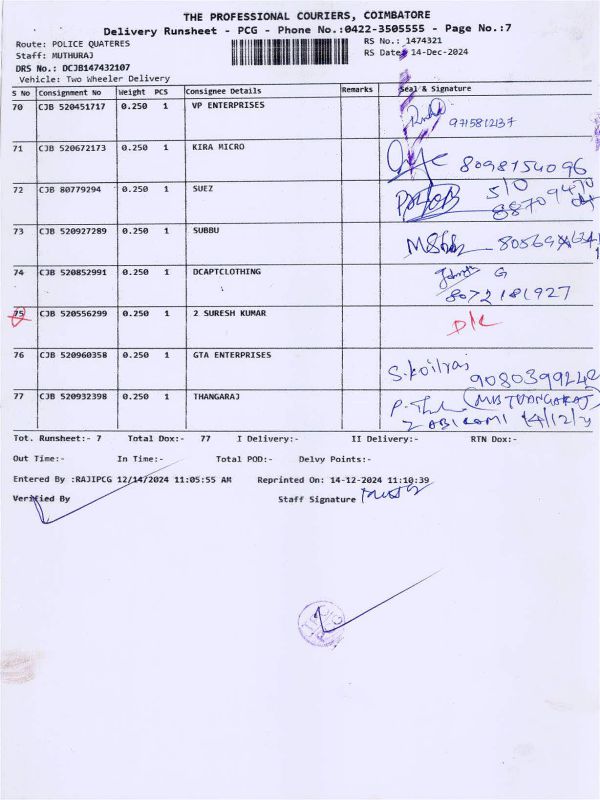 THE PROFESSIONAL COURIERS, COIMBATORE
Delivery Runsheet - PCG - Phone No.:0422-3505555 - Page No.:7
Route: POLICE QUATERES
RS No.: 1474321
Staff: MUTHURAJ
RS Date: 14-Dec-2024
DRS No.: DCJB147432107
Vehicle: Two Wheeler Delivery
S No Consignment No Weight PCS Consignee Details Remarks Seal & Signature
70 CJB 520451717 0.250 1 VP ENTERPRISES
9715812137
71 CJB 520672173 0.250 1 KIRA MICRO 8098154096
72 CJB 80779294 0.250 1 SUEZ S/O
88709470
73 CJB 520927289 0.250 1 SUBBU
74 CJB 520852991 0.250 1 DCAPTCLOTHING G
8072181927
75 CJB 520556299 0.250 1 2 SURESH KUMAR D/L
76 CJB 520960358 0.250 1 GTA ENTERPRISES S. Koilraj
77 CJB 520932398 0.250 1 THANGARAJ
Tot. Runsheet:- 7 Total Dox:- 77 I Delivery:- II Delivery:- RTN Dox:-
Out Time:- In Time:- Total POD:- Delvy Points:-
Entered By :RAJIPCG 12/14/2024 11:05:55 AM Reprinted On: 14-12-2024 11:10:39
Verified By Staff Signature